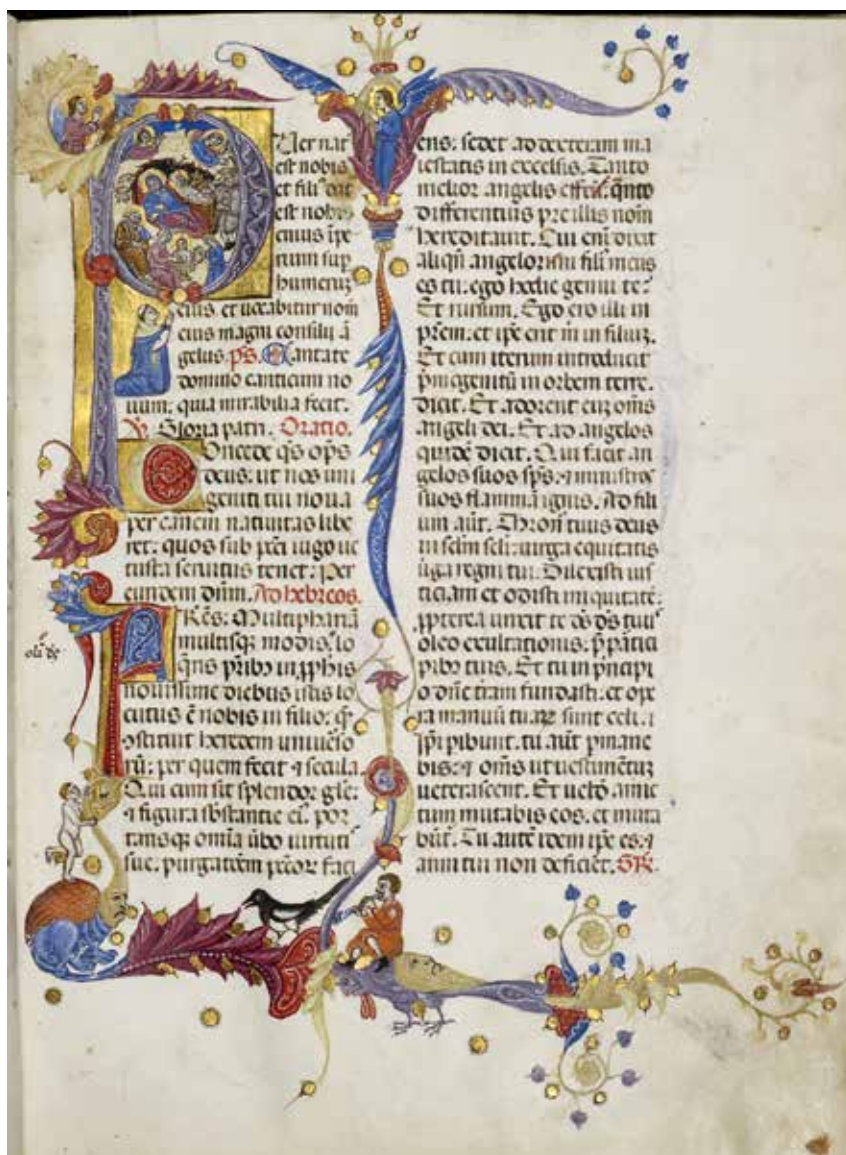 Uer nat
est nobis
et fili᾽ dat᾽
est nobis
cuius īpe
rium sup̄
humerū
eius. et uocabitur nom̄
eius magni consilii ā
gelus. ps. Cantate
domino canticum no
uum. quia mirabilia fecit.
V. Gloria patri. Oratio.
Oncede qs op̄s
deus: ut nos uni
geniti tui noua
per carnem natiuitas libe
ret: quos sub pcī iugo ue
tusta seruitus tenet. Per
eundem dūm. Ad hebreos.
R̄es: Multiphariā
multisq; modis lo
q̄ns p̄rib; in ꝓphis
nouissime diebus istis lo
cutus ē nobis in filio: q̄
ꝯstituit heredem uniuerso
rū: per quem fecit ⁊ secula.
Qui cum sit splendor gl̄e:
⁊ figura sbstantie ei᾽. por
tansq; omīa ūbo uirtuti᾽
sue. purgatōem pctōꝝ faci
ens: sedet ad dexteram ma
iestatis in excelsis. Tanto
melior angelis effect᾽. q̄nto
differentius pre illis nom̄
hereditauit. Cui enī dixit
aliqn̄ angeloꝝ fili᾽ meus
es tu: ego hodie genui te?
Et rursum. Ego ero illi in
pr̄em: et ip̄e erit m̄ in filiū.
Et cum iterum introducit
p̄mogenitū in orbem terre.
dicit. Et adorent eum om̄s
angeli dei. Et ad angelos
quidē dicit. Qui facit an
gelos suos sp̄s: ⁊ ministros
suos flammā ignis. Ad fili
um aūt. Thron᾽ tuus deus
in sclm̄ scli: uirga equitatis
ūga regni tui. Dilexisti ius
ticiam et odisti iniquitatē:
ꝓpterea unxit te ds̄ ds̄ tuu᾽
oleo exultationis: p̄ pātici
pib; tuis. Et tu in p̄ncipi
o dn̄e tr̄am fundasti: et ope
ra manuū tuaꝝ sunt celi. i
ip̄i pibunt. tu aūt pmane
bis: ⁊ om̄s ut uestimentū
ueterascent. Et uelut amic
tum mutabis eos. et muta
būt̄. Tu autē idem ip̄e es: ⁊
anni tui non deficiēt. GR̄.